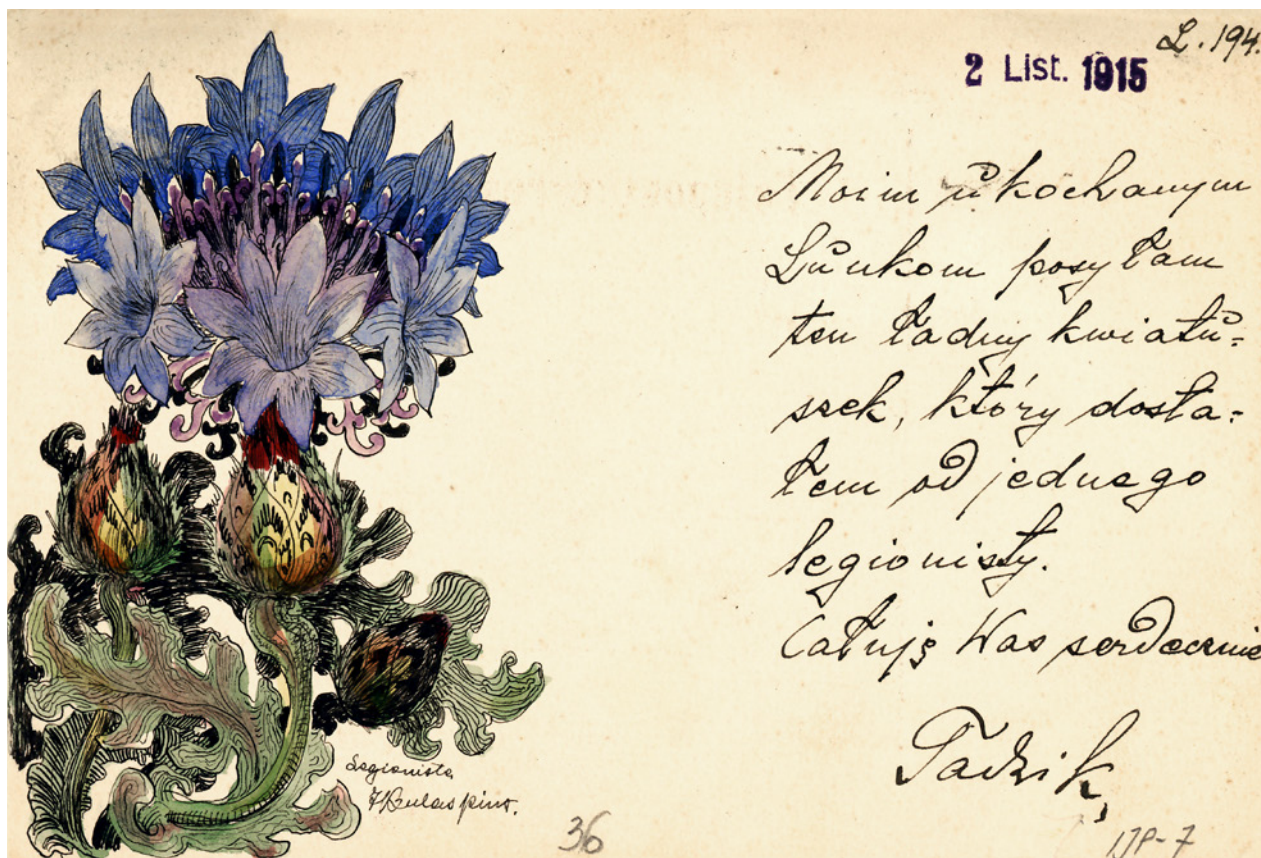 L. 194.
2 List. 1915
Moim ukochanym
Lunkom posyłam
ten ładny kwiatu=
szek, który dosta=
łem od jednego
legionisty.
Całuję Was serdecznie
Tadzik
Legionista
pinx.
36
IJP-7